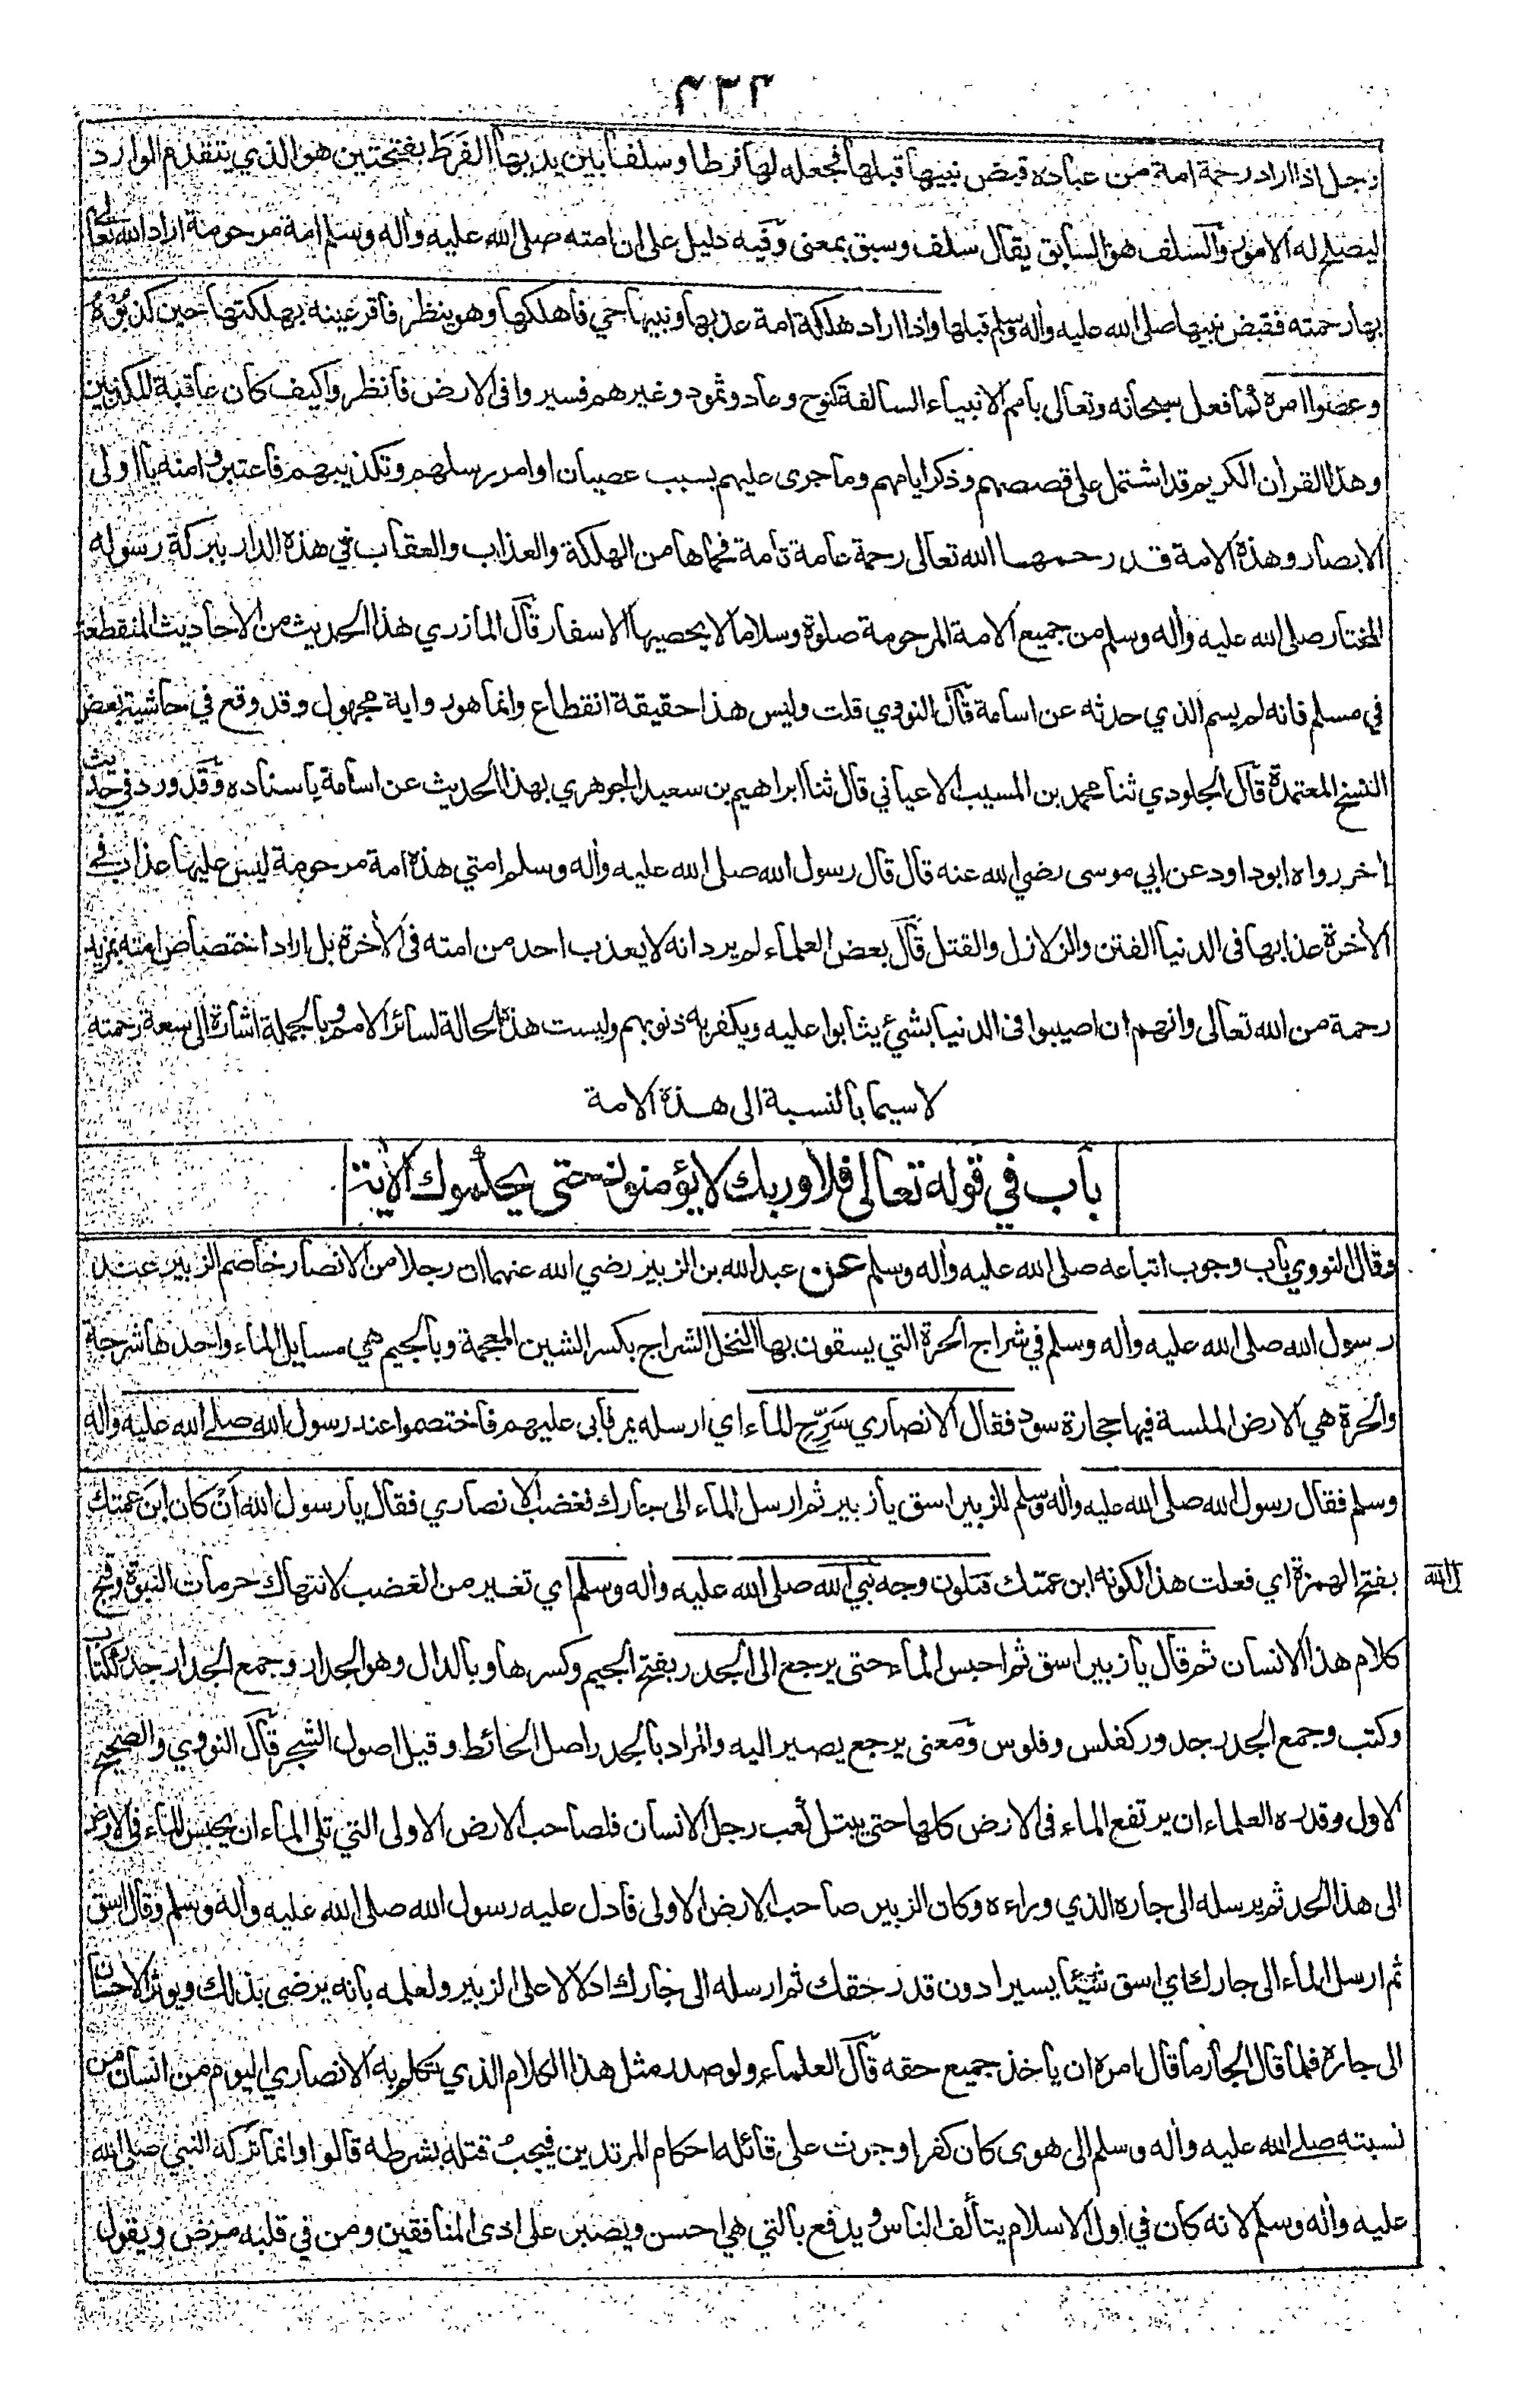 ٤٣٣
وجل اذا اراد رحمة امة من عباده قبض نبيها قبلها فجعله لها فرطا وسلفا بين يديها الفرط بفتحتين هو الذي يتقدم الوارد
ليصلح له الامور والسلف هو السابق يقال سلف وسبق بمعنى وفيه دليل على ان امته صلى الله عليه واله وسلم امة مرحومة اراد الله تعالى
بها رحمته فقبض نبيها صلى الله عليه واله وسلم قبلها واذا اراد هلكة امة عذبها ونبيها حي فاهلكها وهو ينظر فاقر عينه بهلكتها حين كذبوه
وعصوا امره كما فعل سبحانه وتعالى بامم الانبياء السالفة كنوح وعاد وثمود وغيرهم فسيروا فى الارض فانظروا كيف كان عاقبة المكذبين
وهذا القران الكريم قد اشتمل على قصصهم وذكر ايامهم وما جرى عليهم بسبب عصيان اوامر رسلهم وتكذيبهم فاعتبروا منه يا اولى
الابصار وهذه الامة قد رحمها الله تعالى رحمة عامة تامة فحماها من الهلكة والعذاب والعقاب في هذه الدار ببركة رسوله
المختار صلى الله عليه واله وسلم من جميع الامة المرحومة صلوة وسلاما لا يحصيها الاسفار قال المازري هذا الحديث من الاحاديث المنقطعة
في مسلم فانه لم يسم الذي حدثه عن اسامة قال النووي قلت وليس هذا حقيقة انقطاع وانما هو رواية مجهول وقد وقع في حاشية بعض
النسخ المعتمدة قال الجلودي ثنا محمد بن المسيب الاعياني قال ثنا ابراهيم بن سعيد الجوهري بهذا الحديث عن اسامة باسناده وقد ورد في حديث
اخر رواه ابو داود عن ابي موسى رضي الله عنه قال قال رسول الله صلى الله عليه واله وسلم امتي هذه امة مرحومة ليس عليها عذاب فى
الاخرة عذابها فى الدنيا الفتن والزلازل والقتل قال بعض العلماء لم يرد انه لا يعذب احد من امته فى الاخرة بل اراد اختصاص امته بمزيد
رحمة من الله تعالى وانهم ان اصيبوا فى الدنيا بشئ يثابوا عليه ويكفر به ذنوبهم وليست هذه الحالة لسائر الامم وبالجملة اشارة الى سعة رحمته
لا سيما بالنسبة الى هذه الامة
باب في قوله تعالى فلا وربك لا يؤمنون حتى يحكموك الاية
وقال النووي باب وجوب اتباعه صلى الله عليه واله وسلم عن عبد الله بن الزبير رضي الله عنهما ان رجلا من الانصار خاصم الزبير عند
رسول الله صلى الله عليه واله وسلم في شراج الحرة التي يسقون بها النخل الشراج بكسر الشين المعجمة وبالجيم هي مسايل الماء واحدها شرجة
والحرة هي الارض الملسة فيها حجارة سود فقال الانصاري سَرِّحِ الماء اي ارسله يمر فابى عليهم فاختصموا عند رسول الله صلى الله عليه واله
وسلم فقال رسول الله صلى الله عليه واله وسلم للزبير اسق يا زبير ثم ارسل الماء الى جارك فغضب الانصاري فقال يا رسول الله اَنْ كان ابن عمتك
بفتح الهمزة اي فعلت هذا لكونه ابن عمتك فتلون وجه نبي الله صلى الله عليه واله وسلم اي تغير من الغضب لانتهاك حرمات النبوة وقبح
كلام هذا الانسان ثم قال يا زبير اسق ثم احبس الماء حتى يرجع الى الجدر بفتح الجيم وكسرها وبالدال وهو الجدار وجمع الجدار جدر ككتاب
وكتب وجمع الجدر جدور كفلس وفلوس ومعنى يرجع يصير اليه والمراد بالجدر اصل الحائط وقيل اصول الشجر قال النووي والصحيح
الاول وقدره العلماء ان يرتفع الماء فى الارض كلها حتى يبتل كعب رجل الانسان فلصاحب الارض الاولى التي تلى الماء ان يحبس الماء فى الارض
الى هذا الحد ثم يرسله الى جاره الذي وراءه وكان الزبير صاحب الارض الاولى فادل عليه رسول الله صلى الله عليه واله وسلم وقال اسق
ثم ارسل الماء الى جارك اي اسق شيئا يسيرا دون قدر حقك ثم ارسله الى جارك ادلالا على الزبير ولعلمه بانه يرضى بذلك ويوثر الاحسان
الى جاره فلما قال الجار ما قال امره ان ياخذ جميع حقه قال العلماء ولو صدر مثل هذا الكلام الذي تكلم به الانصاري اليوم من انسان من
نسبته صلى الله عليه واله وسلم الى هوى كان كفرا وجرت على قائله احكام المرتدين فيجب قتله بشرطه قالوا وانما تركه النبي صلى الله
عليه واله وسلم لانه كان في اول الاسلام يتألف الناس ويدفع بالتي هي احسن ويصبر على اذى المنافقين ومن في قلبه مرض ويقول